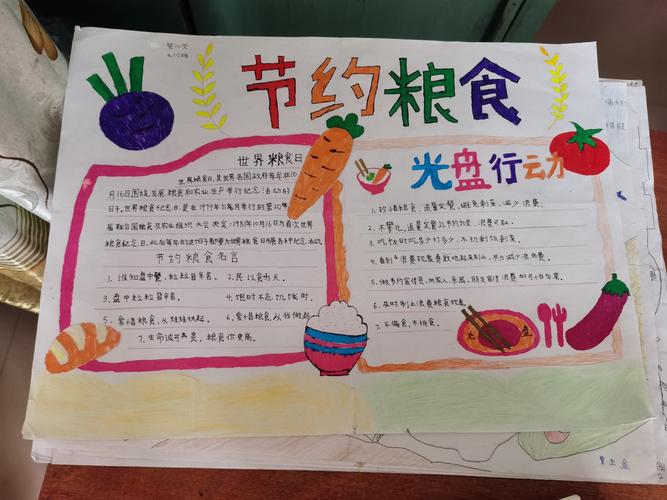 节约粮食
世界粮食日
世界粮食日,是世界各国政府每年在10
月16日围绕发展粮食和农业生产举行纪念活动的
日子。世界粮食纪念日,是在1979年11月举行的第20
届联合国粮食及农业组织大会决定:1981年10月16日为首次世界
粮食纪念日,此后每年的这个日子都要为世界粮食日开展各种纪念活动。
节约粮食名言
1、谁知盘中餐,粒粒皆辛苦。 2、民以食为天。
3、盘中粒粒皆辛苦。 4、饱时不忘饥饿时。
5、爱惜粮食,从娃娃抓起。 6、爱惜粮食,从我做起。
7、生命诚可贵,粮食价更高。
光盘行动
1、珍惜粮食,适量定餐,避免剩菜,减少浪费。
2、不攀比,适量定餐,以节约为荣,浪费可耻。
3、吃饭时吃多少打多少,不扔剩饭剩菜。
4、看到浪费现象勇敢地起来制止,尽力减少浪费。
5、做节约宣传员,向家人、亲戚、朋友宣传浪费的可怕后果。
6、及时制止浪费粮食现象。
7、不偏食,不挑食。
光 盘